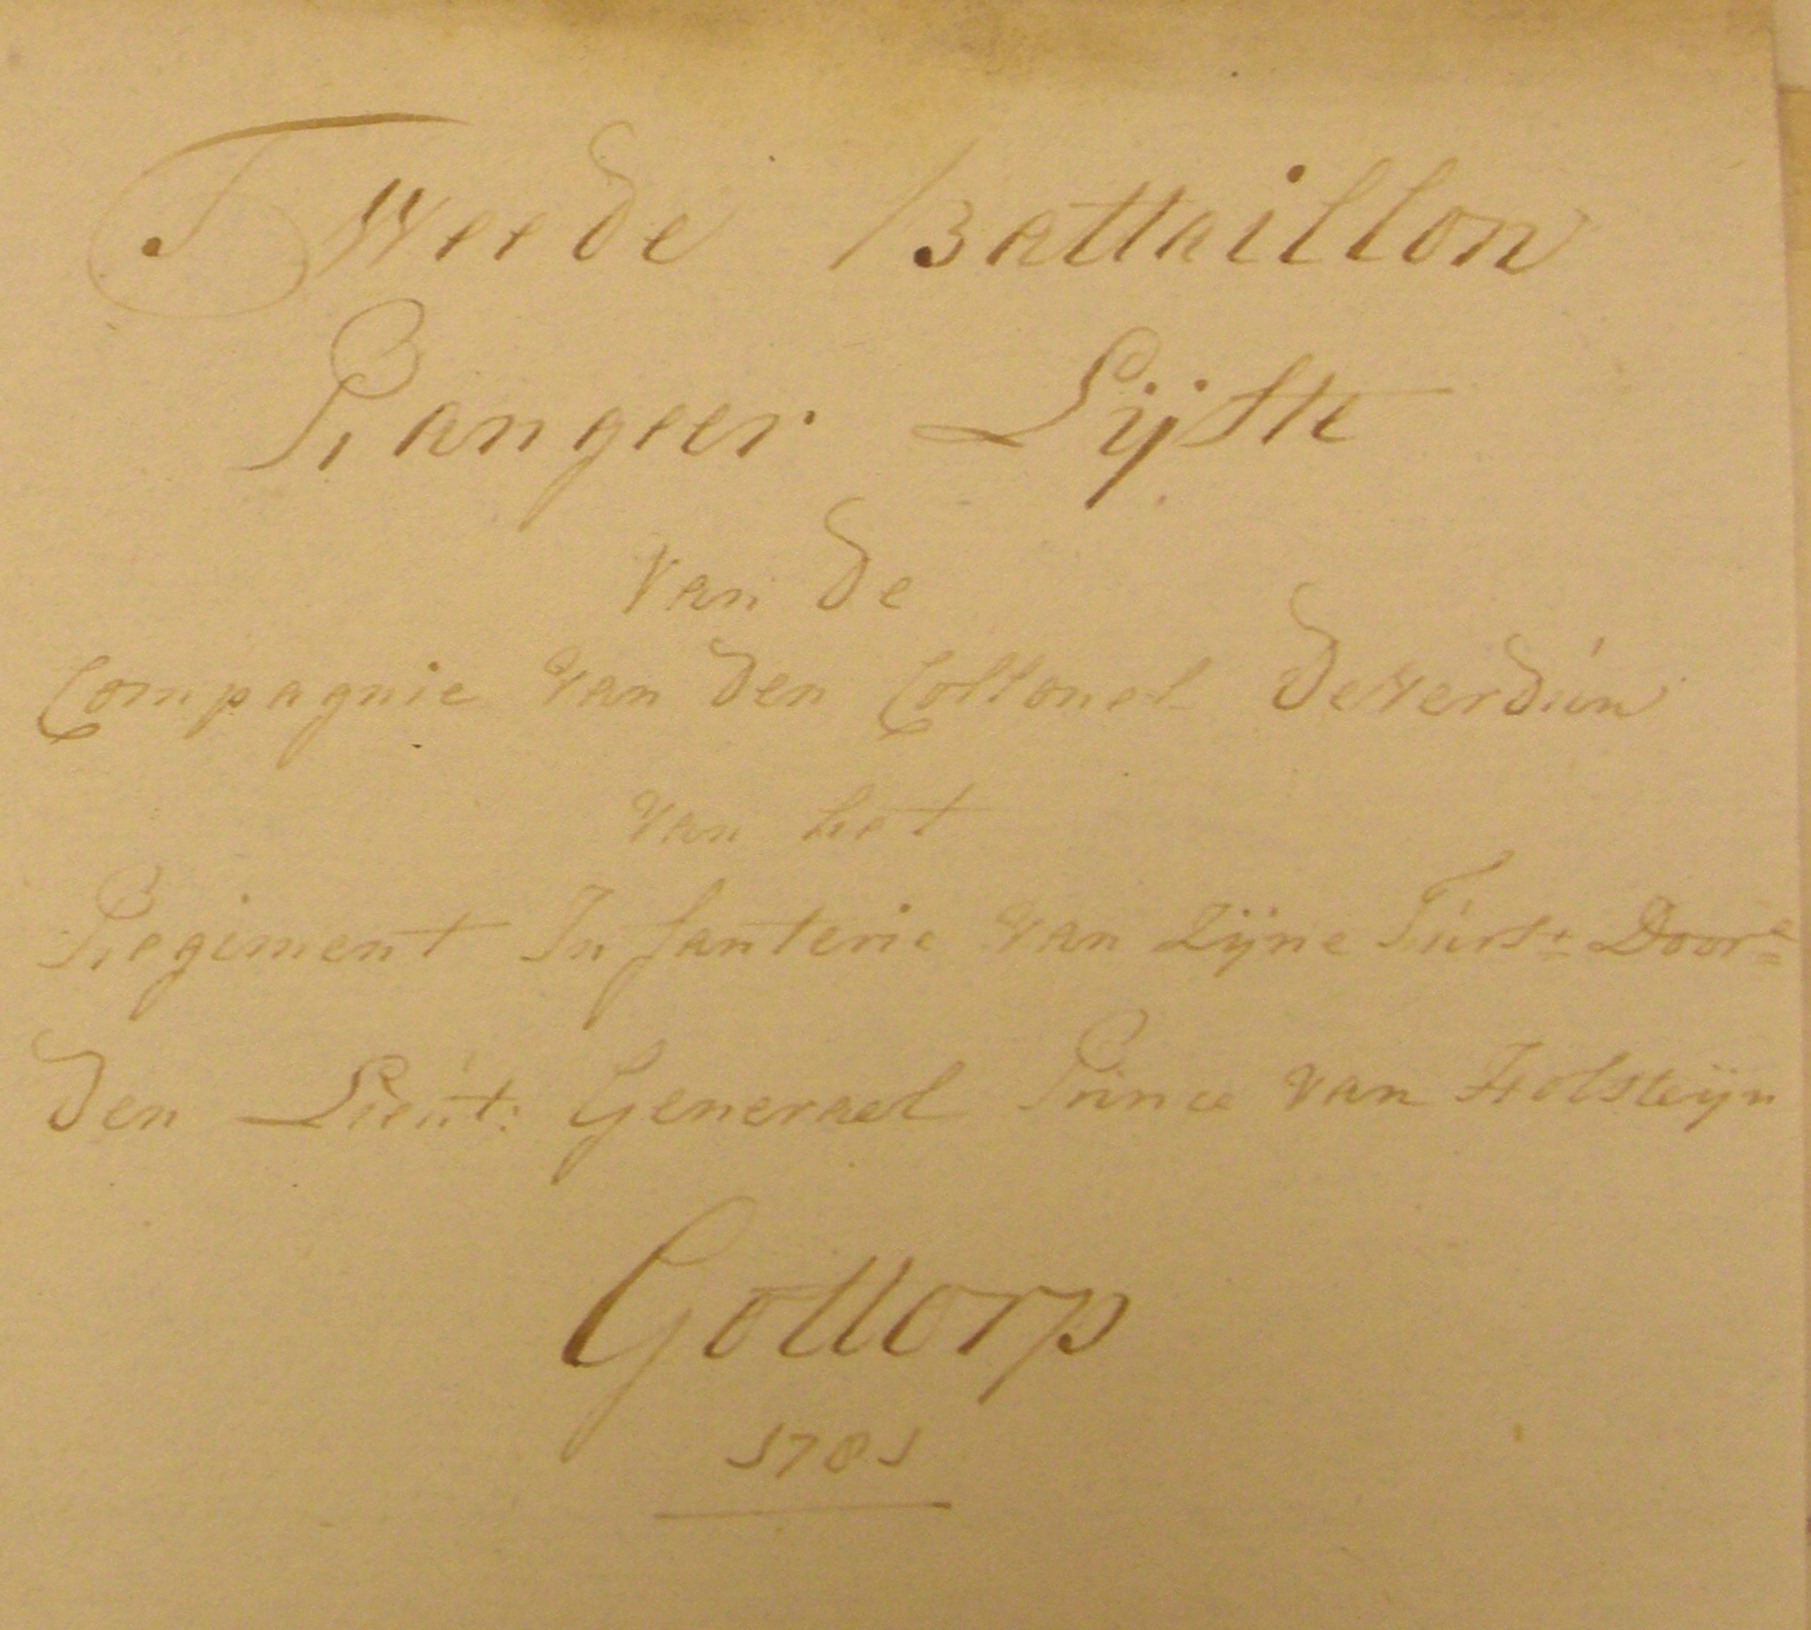 Tweede Battaillon
Rangeer Lijste
van de
Compagnie van den Collonel De Verdún
van het
Regiment Infanterie van Zijne Fúrst: Door=
den Lieút: Generael Prince van Holsteijn
Gottorp
1781